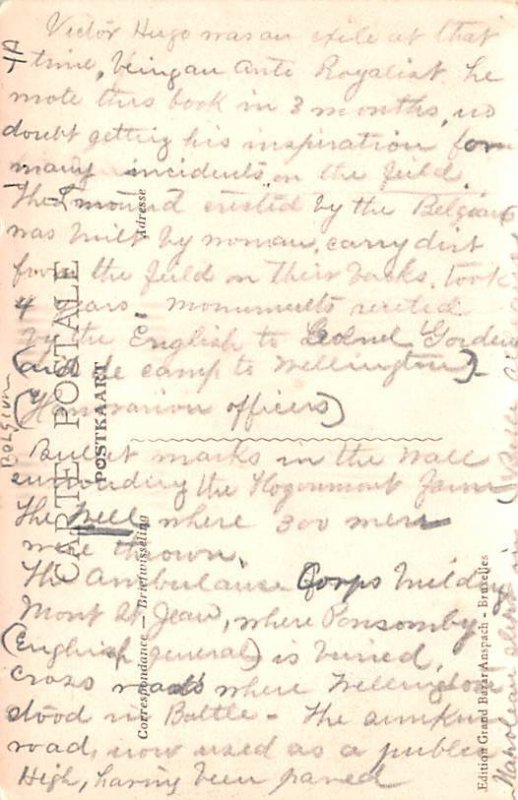 Victor Hugo was an exile at that
time, being an Ante Royalist. he
wrote this book in 3 months, no
doubt getting his inspiration from
many incidents on the field.
The mound erected by the Belgians
was built by woman, carry dirt
from the field on their backs. took
4 years monuments erected
by the English to Colonel Gorden
(aid de camp to Wellington)
(Hanovarion officers)
Bullet marks in the wall
surrounding the Hogoumont farm
The Well where 300 men
were thrown.
The Ambulance Corps building
Mont St Jean, where Ponsomby
(English general) is buried,
cross roads where Wellington
stood in Battle - The sunken
road, now used as a public
High, having been paved
BELGIUM
CARTE POSTALE
POSTKAART
Adresse
Correspondance — Briefwisseling
Edition Grand Bazar Anspach - Bruxelles
Napoleon slept in